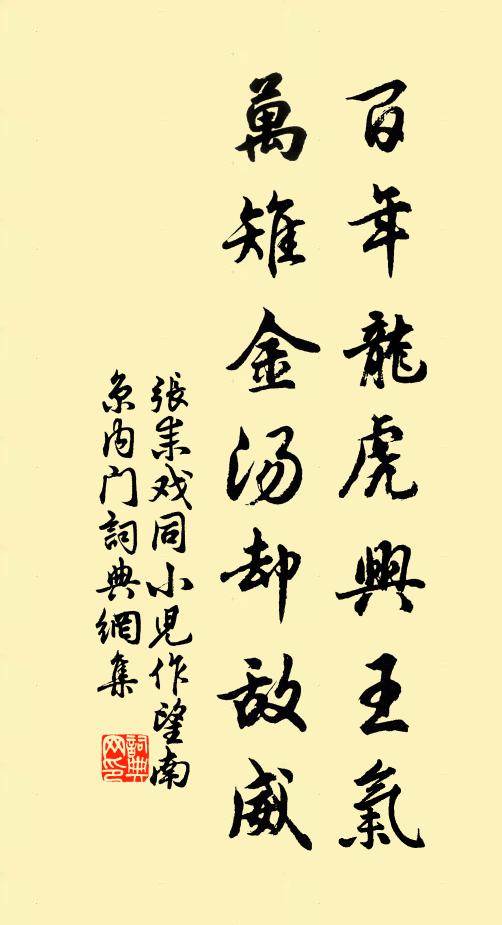 百年龍虎興王氣
萬雉金汤却敌威
張耒戏同小児作望南
京内门詞典網集
詞典网印